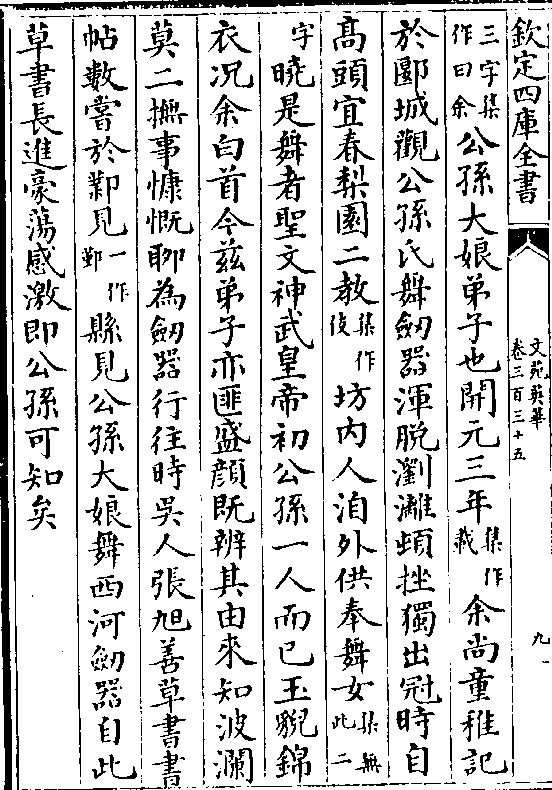 欽定四庫全書
文苑英華
卷三百三十五
九
三字集作曰余公孫大娘弟子也開元三年集作載余尚童稚記
於郾城觀公孫氏舞劒器渾脫瀏灕頓挫獨出冠時自
髙頭宜春梨園二教集作伎坊内人洎外供奉舞女集無此二
字曉是舞者聖文神武皇帝初公孫一人而已玉貌錦
衣况余白首今兹弟子亦匪盛顔既辨其由來知波瀾
莫二撫事慷慨聊為劒器行往時吳人張旭善草書書
帖數嘗於鄴見一作鄴縣見公孫大娘舞西河劒器自此
草書長進豪蕩感激即公孫可知矣